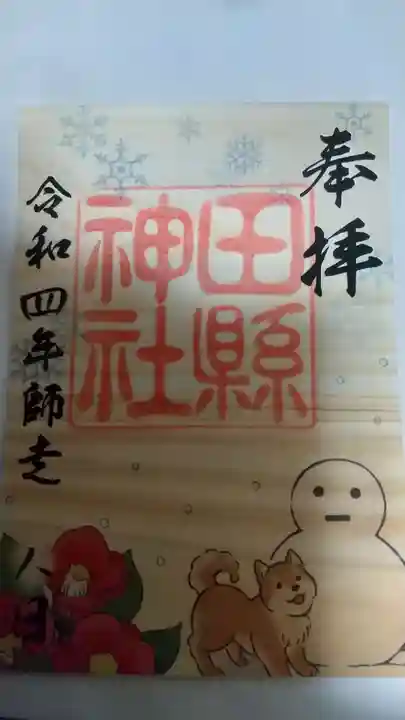 奉拝
田縣
神社
令和四年師走
八日